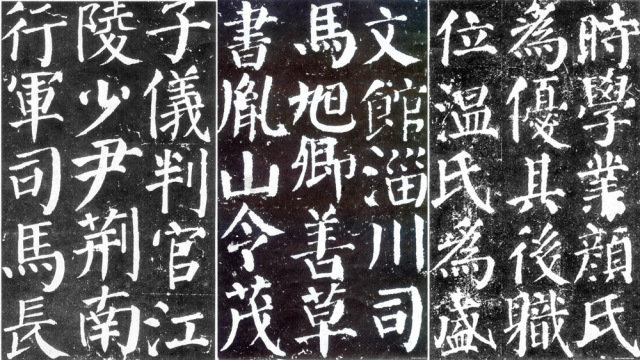 時學業顔氏
為優其後職
位温氏為盛
文館淄川司
馬旭卿善草
書胤山令茂
子儀判官江
陵少尹荆南
行軍司馬長